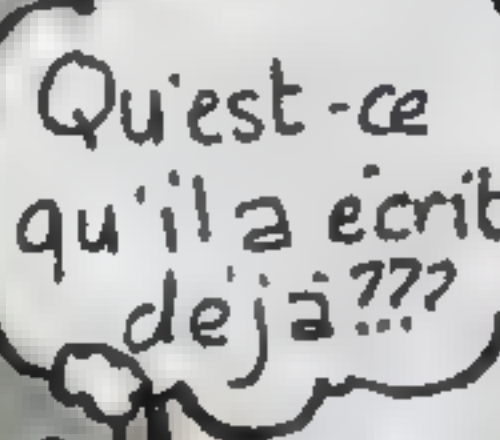 Qu'est-ce
qu'il a écrit
déjà???